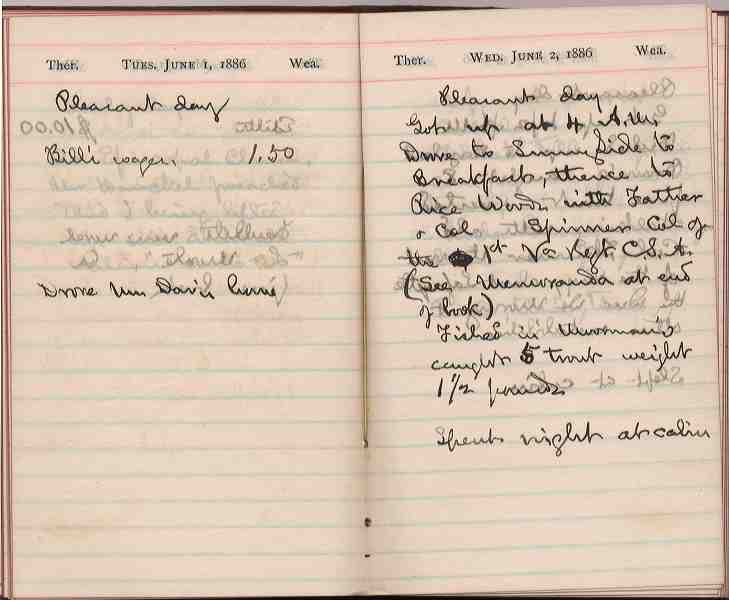 Ther. TUES. JUNE 1, 1886 Wea.
Pleasant day
Bill's wages. 1.50
Drove Mr. Davis
Ther. WED. JUNE 2, 1886 Wea.
Pleasant day
Got up at 4 A.M.
Drove to Sunny Side to
Breakfast, thence to
Pike Woods with Father
& Col. Spinner Col of
the 1st Va Regt C.S.A.
(See Memoranda at end
of book)
Fished in
caught 5 trout weight
1 1/2 pounds
Spent night at cabin